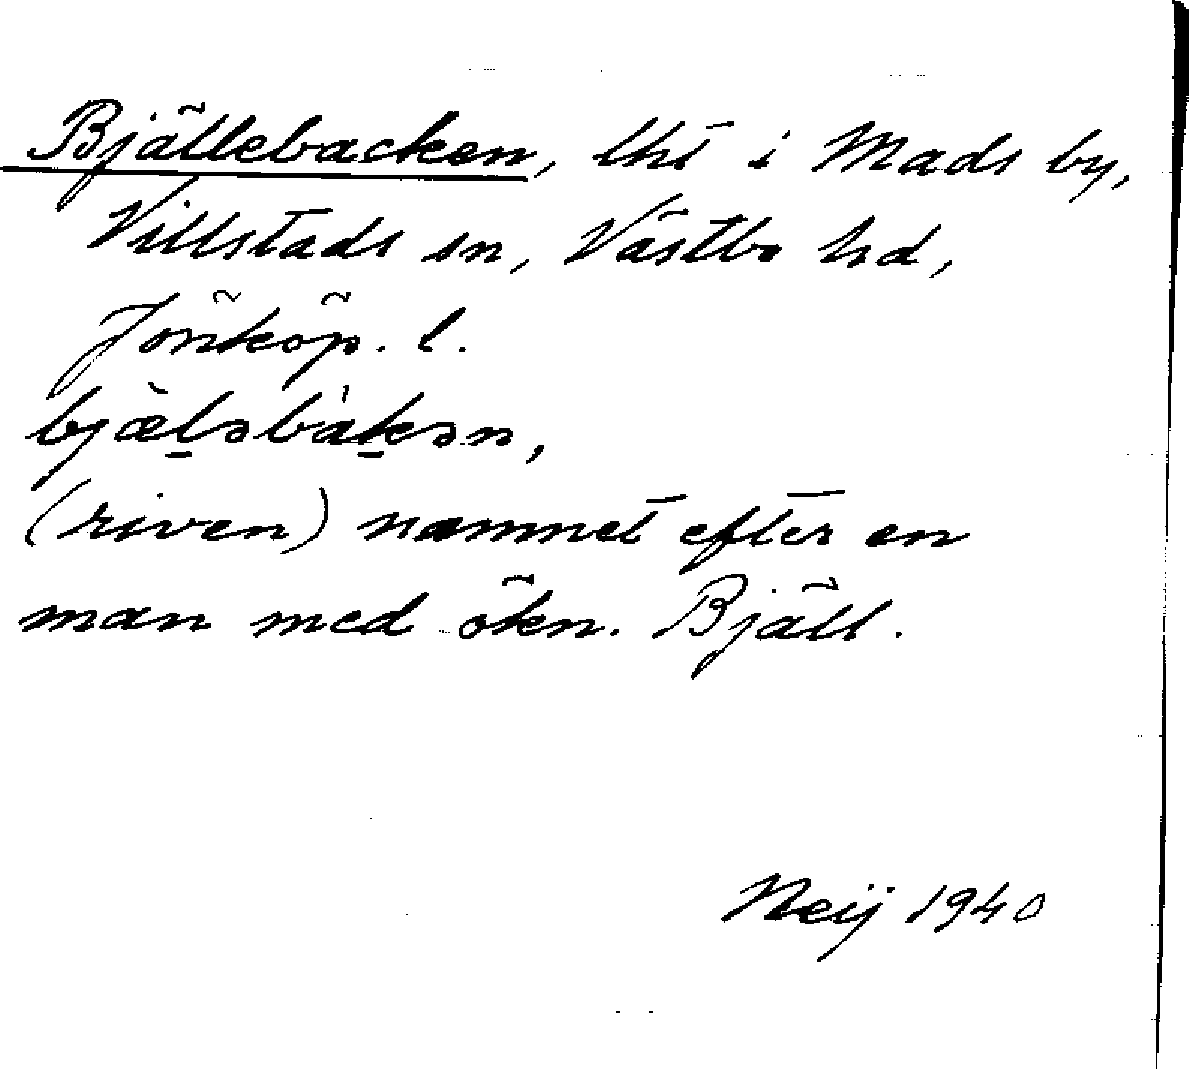 Bjällebacken, lht i Mads by,
Villstads sn, Västbo hd,
Jönköp. l.
bjæ̀l̠əbák̠ən,
(riven) namnet efter en
man med ökn. Bjäll.
Neij 1940